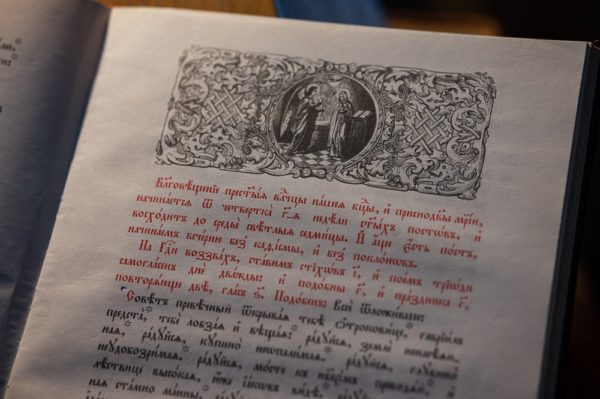 Благовѣщенїе прест҃ы́ѧ влⷣцы нашеѧ бцⷣы, и҆ приснодв҃ы мрі́и,
начинаетсѧ ѿ четвертка г҃-ѧ недѣли ст҃ыхъ постѡвъ, и҆
восходитъ до среды свѣтлыѧ седмицы. И҆ а҆ще є҆сть постъ,
начинаемъ вечерню без̾ каѳїсмы, и҆ без̾ поклонѡвъ.
На Гдⷭ҇и воззвахъ, ставимъ стїхѡвъ і҃, и҆ поемъ трїѡди
самогласенъ днѐ дважды: и҆ подобны г҃, и҆ праздника г҃,
повторяюще двѐ, гласъ ѕ҃. Подобенъ: Всѐ ѿложивше:
Совѣтъ превѣчный ѿкрываѧ тебѣ̀ Ѻ҆троковице, гаврїилъ
предста̀, тебѐ лобзаѧ и҆ вѣщаѧ: радуйсѧ, землѐ ненасѣѧн-
наѧ, радуйсѧ, купино̀ неѡпалимаѧ, радуйсѧ, глубино̀
неудобозримаѧ. радуйсѧ, мосте къ нб҃сѣмъ приводѧй, и҆
лѣствице высокаѧ, ю҆же і҆аковъ видѣ, радуйсѧ,
наѧ стамно манны,